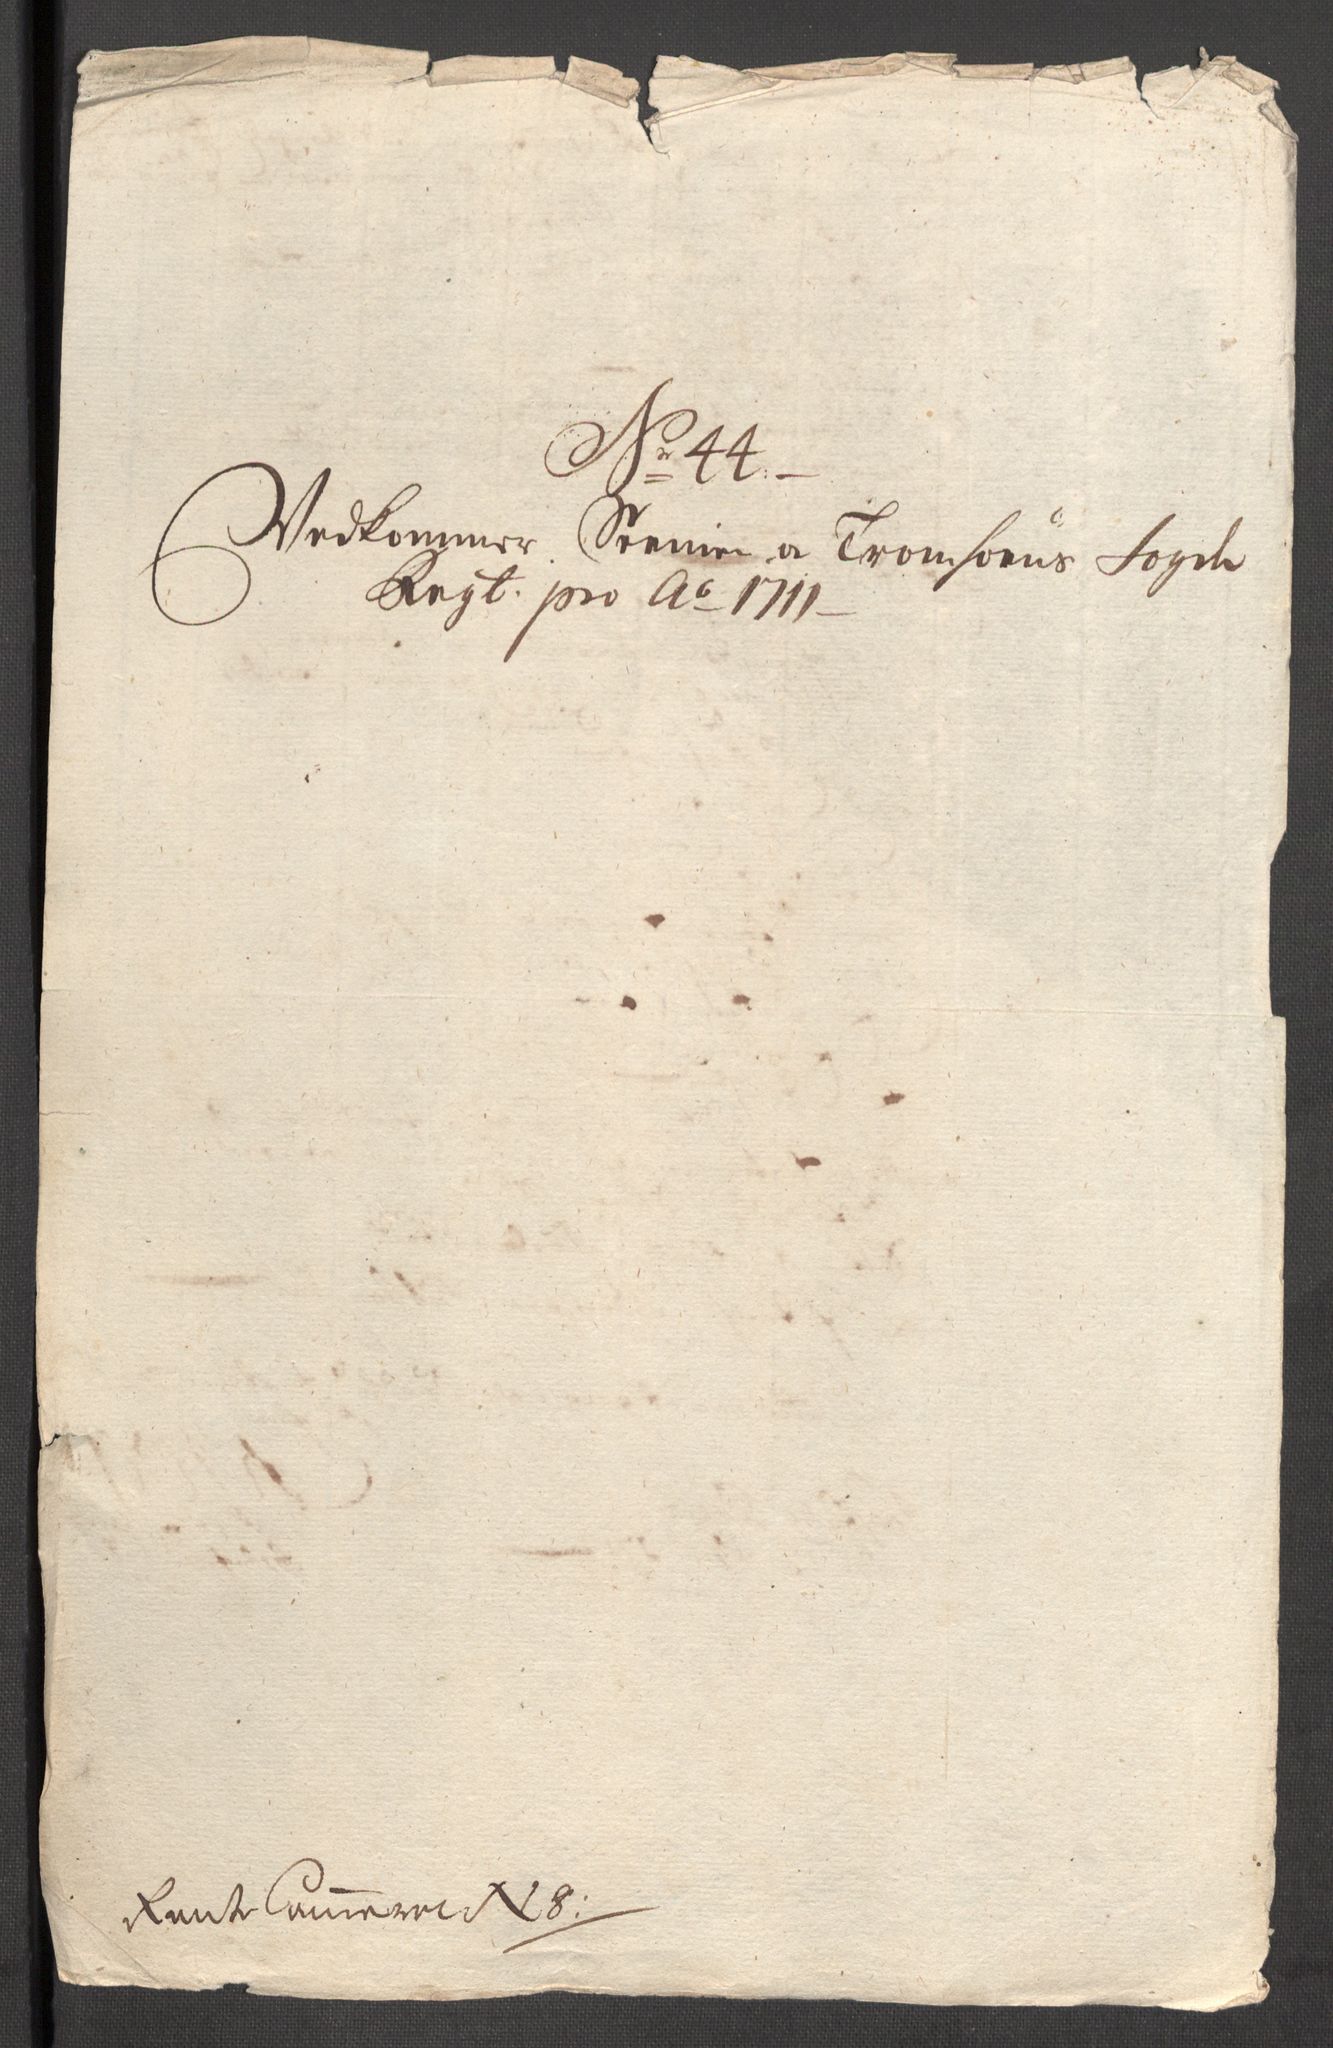 No 44.
Vedkommer Sennien oc Tromsøens Fogde
Regt. pro Ao 1711
Rente Cammeret N 8: